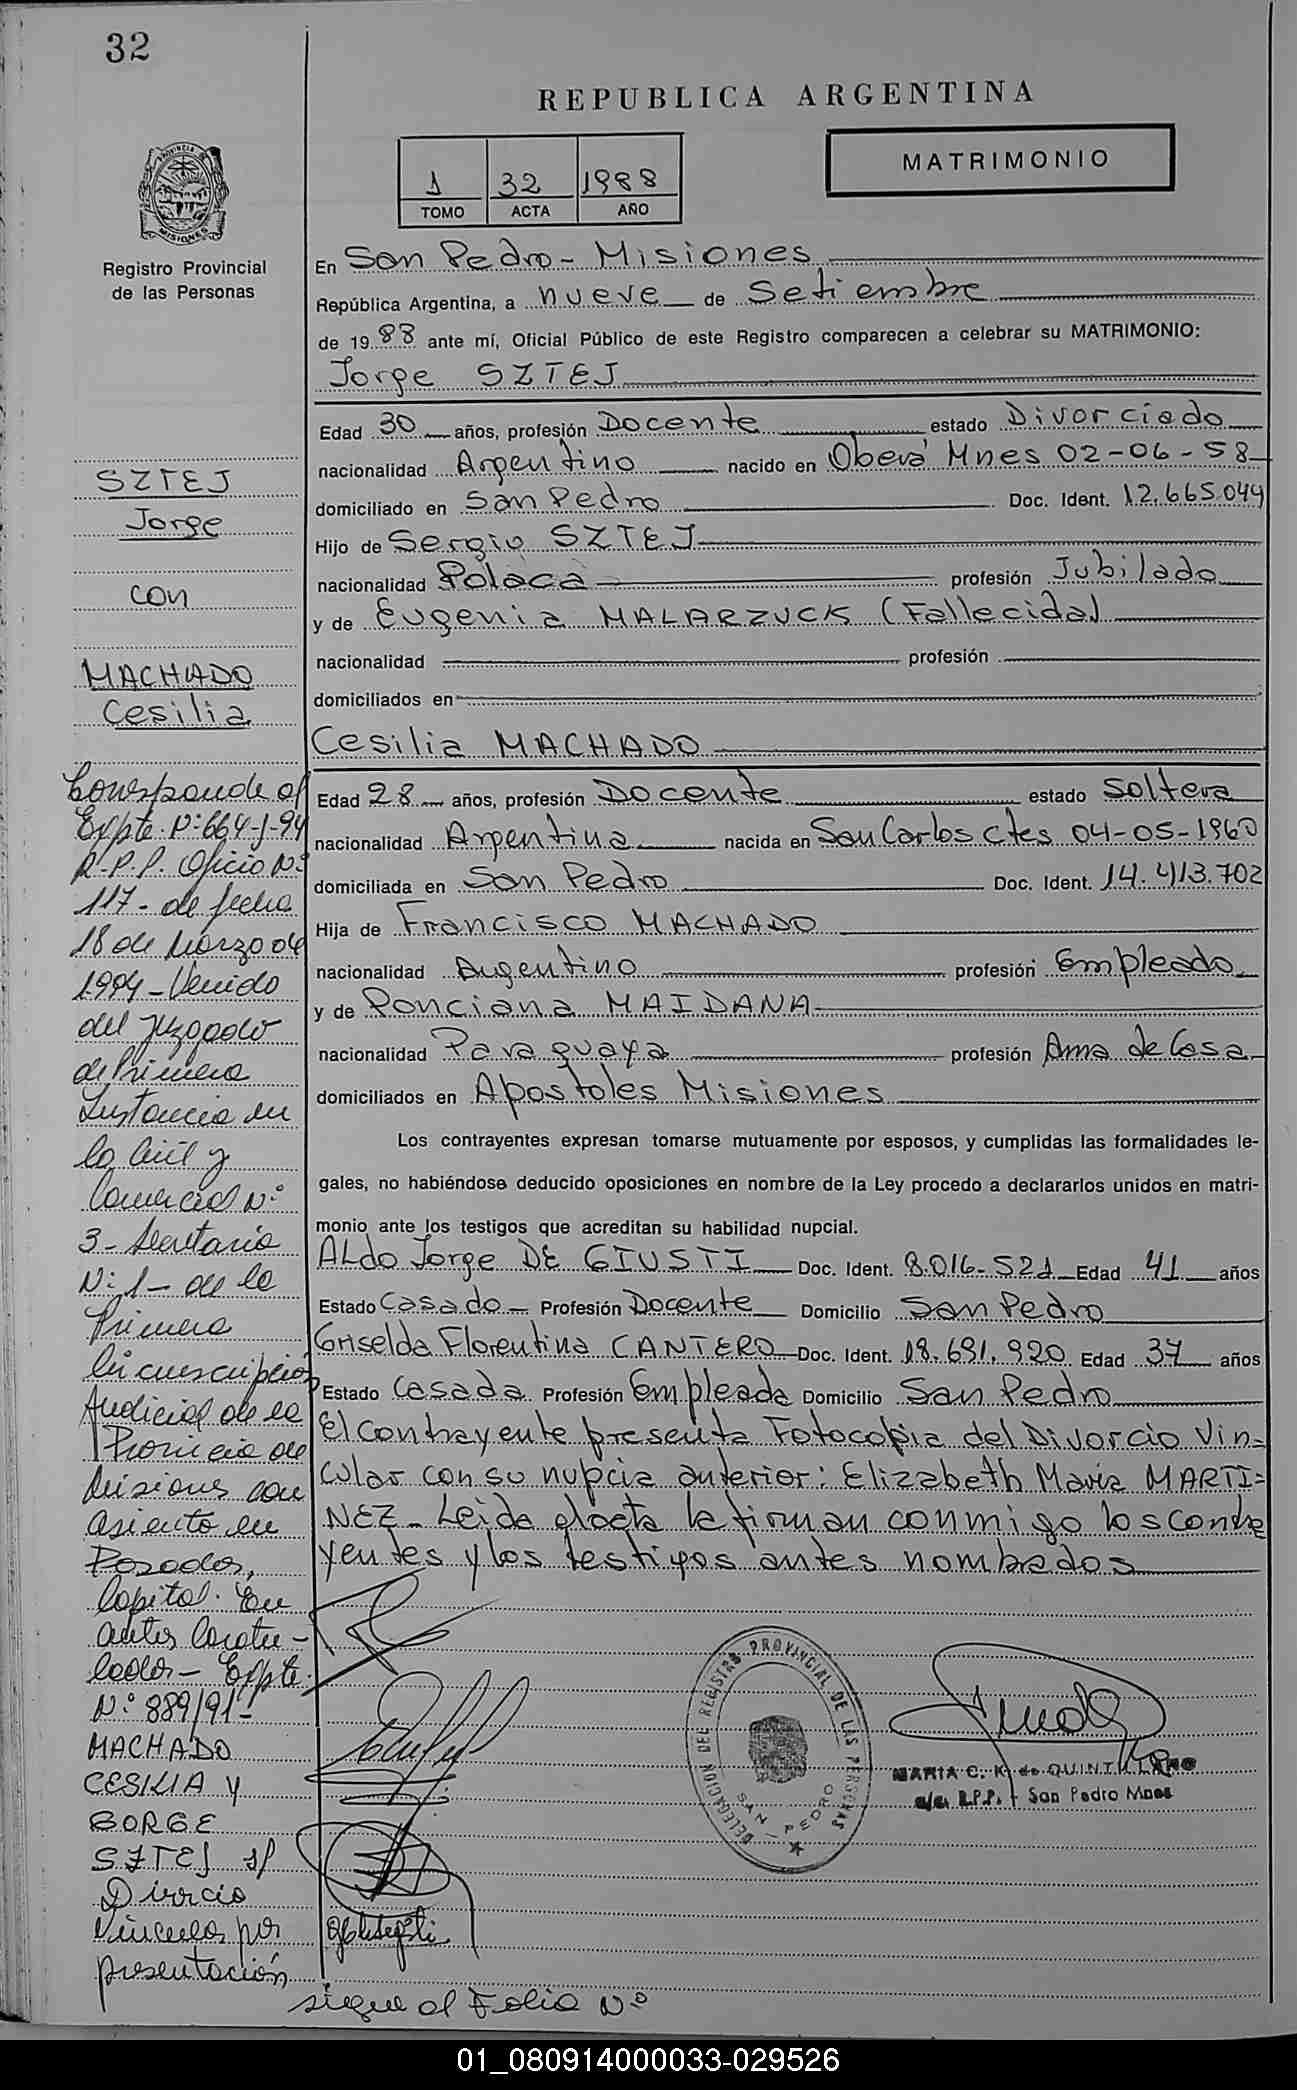 32
REPUBLICA ARGENTINA
MATRIMONIO
1 32 1988
TOMO ACTA AÑO
PROVINCIA DE MISIONES
Registro Provincial
de las Personas
En San Pedro - Misiones
República Argentina, a nueve de Setiembre
de 19 88 ante mí, Oficial Público de este Registro comparecen a celebrar su MATRIMONIO:
Jorge SZTEJ
Edad 30 años, profesión Docente estado Divorciado
nacionalidad Argentino nacido en Oberá Mnes 02-06-58
domiciliado en San Pedro Doc. Ident. 12.665.044
Hijo de Sergio SZTEJ
nacionalidad Polaca profesión Jubilado
y de Eugenia MALARZUCK (Fallecida)
nacionalidad profesión
domiciliados en
Cesilia MACHADO
Edad 28 años, profesión Docente estado Soltera
nacionalidad Argentina nacida en San Carlos Ctes 04-05-1960
domiciliada en San Pedro Doc. Ident. 14.413.702
Hija de Francisco MACHADO
nacionalidad Argentino profesión Empleado
y de Ponciana MAIDANA
nacionalidad Paraguaya profesión Ama de Casa
domiciliados en Apostoles Misiones
Los contrayentes expresan tomarse mutuamente por esposos, y cumplidas las formalidades le-
gales, no habiéndose deducido oposiciones en nombre de la Ley procedo a declararlos unidos en matri-
monio ante los testigos que acreditan su habilidad nupcial.
Aldo Jorge DE GIUSTI Doc. Ident. 8.016.521 Edad 41 años
Estado Casado Profesión Docente Domicilio San Pedro
Griselda Florentina CANTERO Doc. Ident. 18.691.920 Edad 37 años
Estado Casada Profesión Empleada Domicilio San Pedro
El contrayente presenta Fotocopia del Divorcio Vin=
cular con su nupcia anterior: Elizabeth María MARTI=
NEZ - Leida el acta la firman conmigo los contra
yentes y los testigos antes nombrados
DELEGACION DEL REGISTRO PROVINCIAL DE LAS PERSONAS
SAN - PEDRO
MARIA C. K. de QUINTANA
a/c. R.P.P. - San Pedro Mnes
SZTEJ
Jorge
con
MACHADO
Cesilia
Corresponde al
Expte. Nº 664-J-94
R.P.P. Oficio Nº
117 - de fecha
18 de Marzo de
1994 - Venido
del Juzgado
de Primera
Instancia en
lo Civil y
Comercial Nº
3 - Secretaria
Nº 1 - de la
Primera
Circunscripción
Judicial de la
Provincia de
Misiones con
asiento en
Posadas,
Capital. En
autos Caratu-
lados - Expte.
Nº 889/91-
MACHADO
CESILIA y
BORGE
SZTEJ s/
Divorcio
Vincular por
presentación
sigue al Folio Nº
01_080914000033-029526